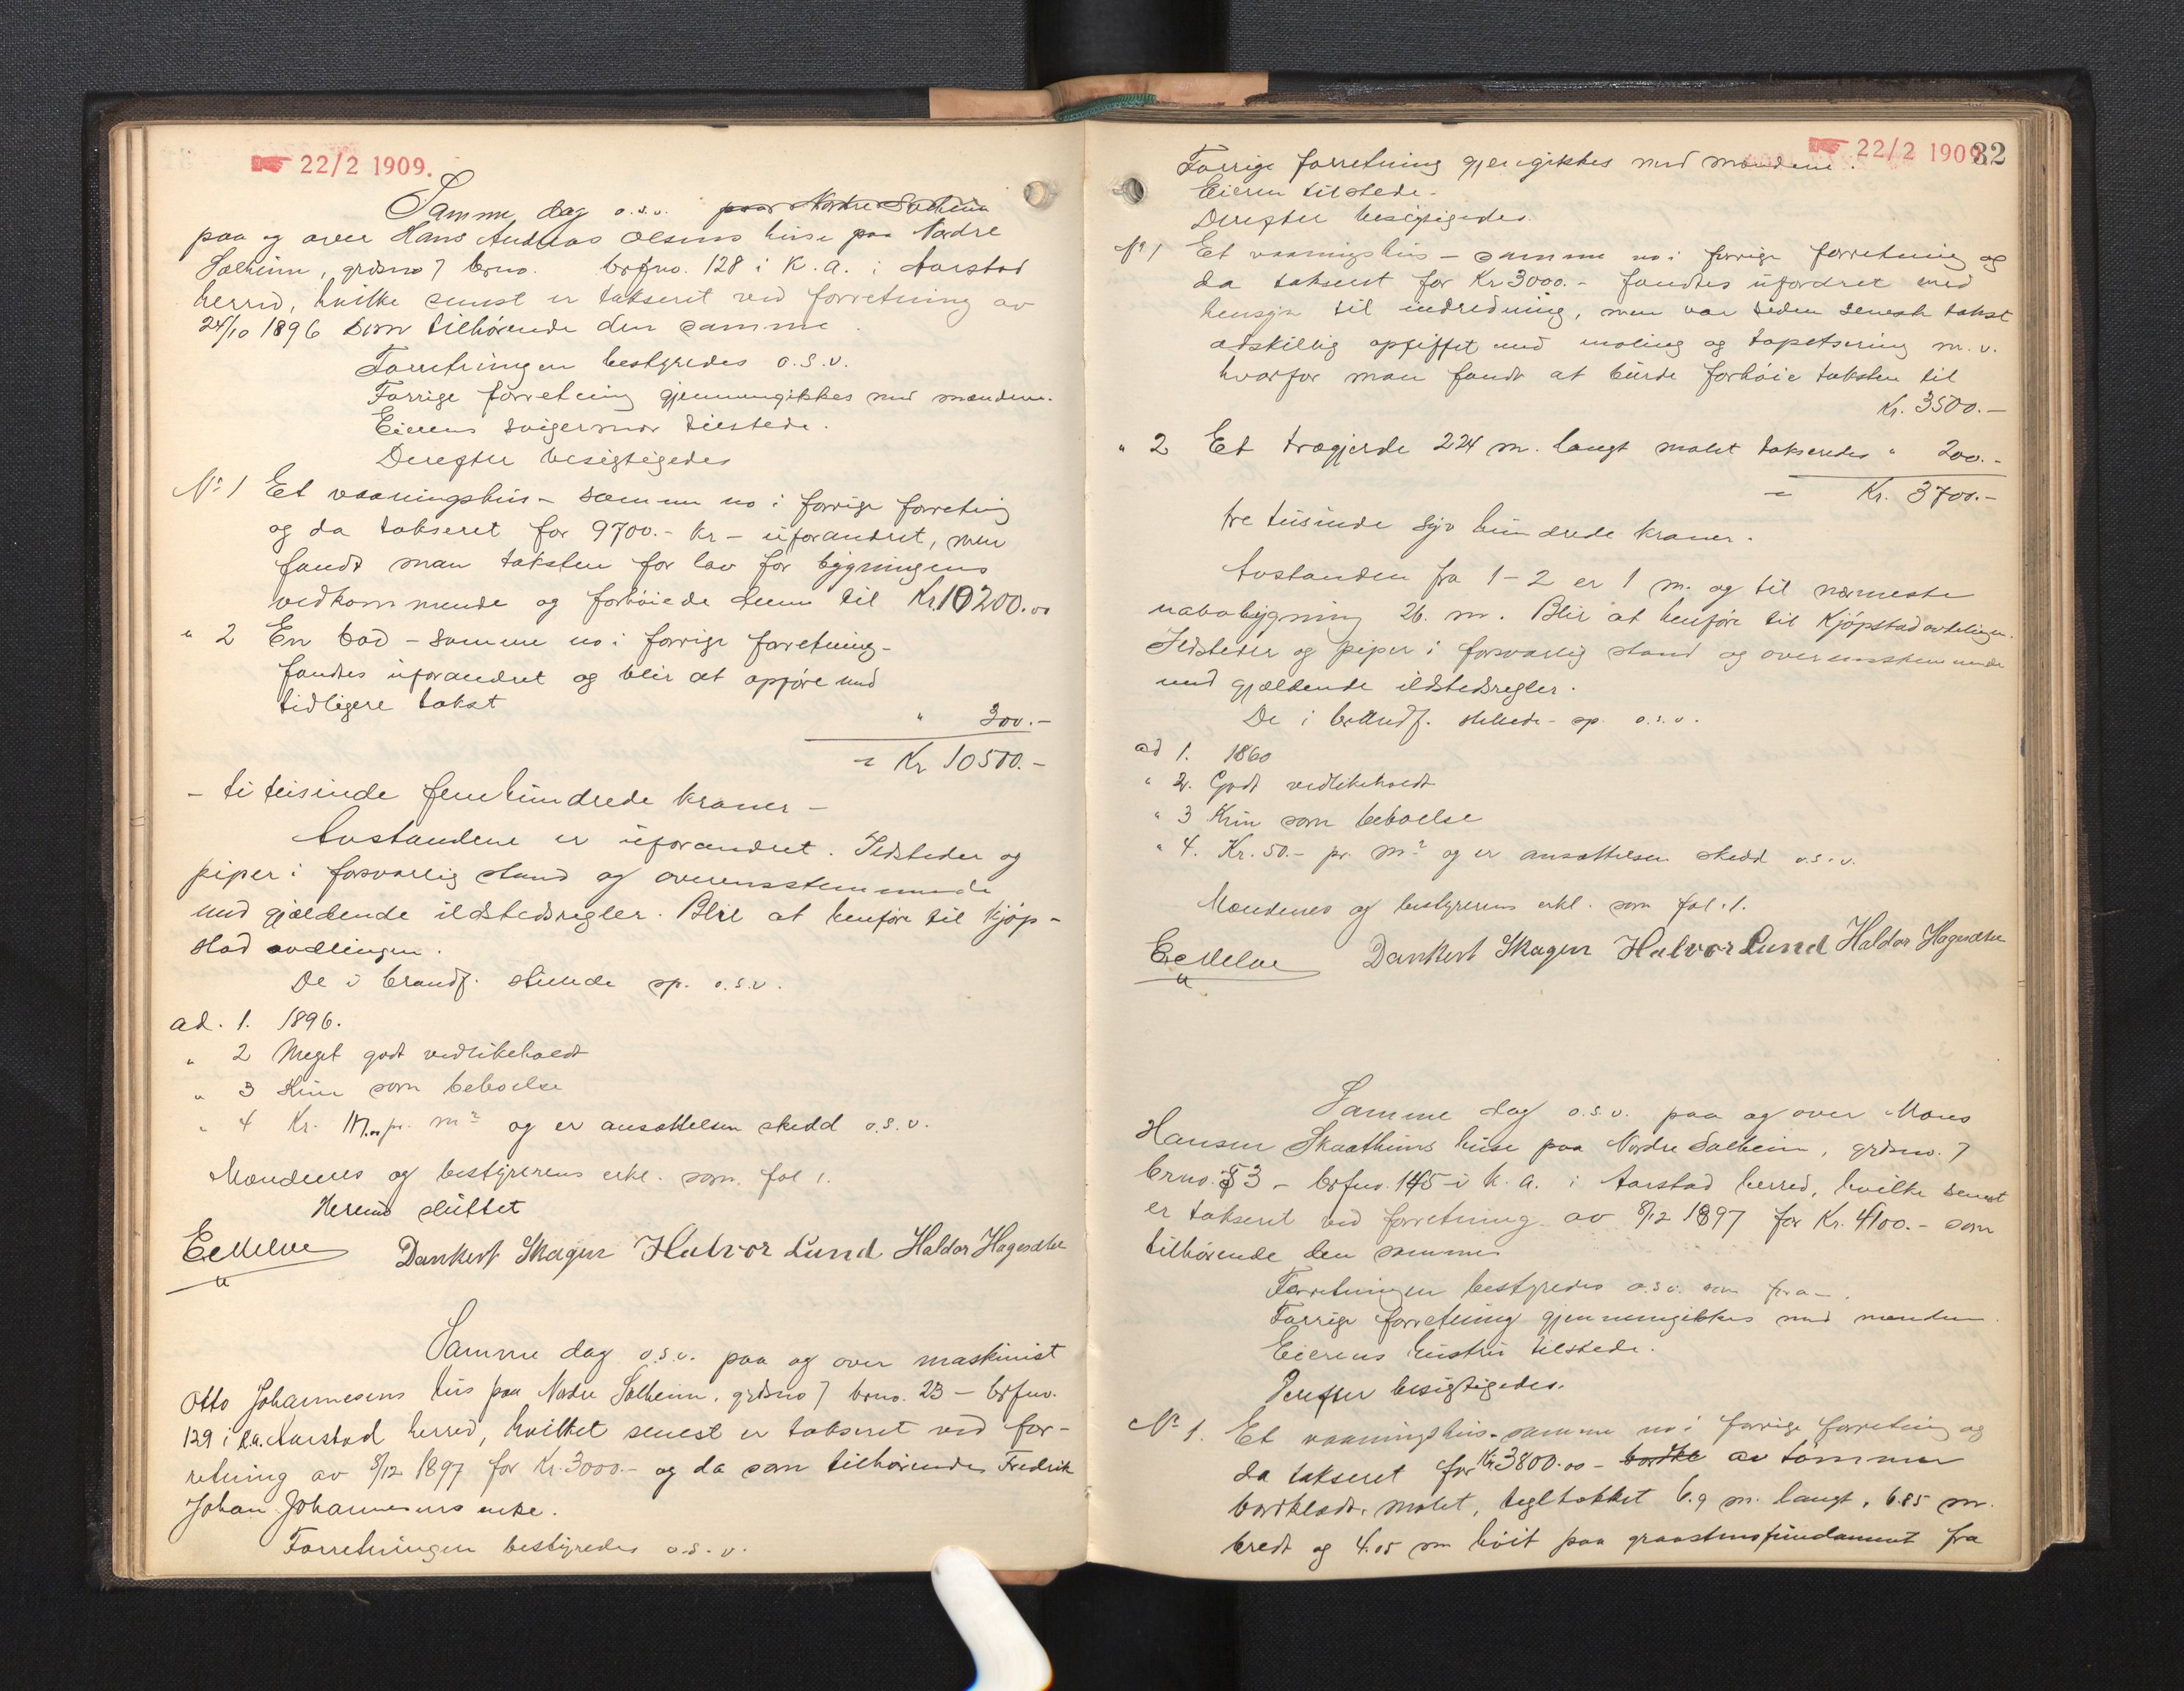 22/2 1909.
Samme dag o.s.v. paa Nordre Solheim
paa og over Hans Andreas Olsens huse paa Nordre
Solheim, grdsno 7 brno. brfno. 128 i K.a. i Aarstad
herred, hvilke senest er takseret ved forretning av
24/10 1896 som tilhørende den samme.
Forretningen bestyredes o.s.v.
Forrige forretning gjennemgikkes med mændene.
Eierens svigermor tilstede.
Derefter besigtigedes
No 1 Et vaaningshus - samme no i forrige forretning
og da takseret for 9700.- Kr - uforandret, men
fandt man taksten for lav for bygningens
vedkommende og forhøiede denne til Kr 10200.00
" 2 En bod - samme no i forrige forretning -
fandtes uforandret og blir at opføre med
tidligere takst
" 300.-
= Kr 10500.-
- ti tusinde fem hundrede kroner -
Avstandene er uforandret. Ildsteder og
piper i forsvarlig stand og overensstemmende
med gjældende ildstedsregler. Blir at henføre til Kjøp-
stad avdelingen.
De i brandf. stillede sp. o.s.v.
ad. 1. 1896.
" 2 Meget godt vedlikeholdt
" 3 Kun som beboelse
" 4 Kr. pr. m2 og er ansættelsen skedd o.s.v.
Mændenes og bestyrerens erkl. som fol 1.
Hermed sluttet
Dankert Skagen Halvor Lund Haldor Hagesæther
Samme dag o.s.v. paa og over maskinist
Otto Johannesens hus paa Nordre Solheim, grdsno 7 brno. 23 - brfno.
129 i K.a. Aarstad herred, hvilket senest er takseret ved for-
retning av 8/12 1897 for Kr. 3000.- og da som tilhørende Fredrik
Johan Johannesens enke.
Forretningen bestyredes o.s.v.
22/2 1909.
32
Forrige forretning gjengikkes med mændene.
Eieren tilstede.
Derefter besigtigedes.
No 1 Et vaaningshus - samme no i forrige forretning og
da takseret for Kr 3000.- fandtes uforandret med
hensyn til indredning, men var siden seneste takst
adskillig opfiffet med maling og tapetsering m.v.
hvorfor man fandt at burde forhøie taksten til
Kr. 3500.-
" 2 Et trægjerde 224 m. langt malet takseredes " 200.-
= Kr. 3700.-
tre tusinde syv hundrede kroner.
Avstanden fra 1-2 er 1 m. og til nærmeste
nabobygning 26. m. Blir at henføre til Kjøpstadavdelingen.
Ildsteder og piper i forsvarlig stand og overensstemmende
med gjældende ildstedsregler.
De i brandf. stillede sp. o.s.v.
ad 1. 1860
" 2. Godt vedlikeholdt
" 3 Kun som beboelse
" 4. Kr. 50.- pr. m2 og er ansættelsen skedd o.s.v.
Mændenes og bestyrerens erkl. som fol. 1.
Dankert Skagen Halvor Lund Haldor Hagesæther
Samme dag o.s.v. paa og over Mons
Hansen Skaatheims huse paa Nordre Solheim, grdsno. 7
brno. 53 - brfno. 145 i K.a. i Aarstad herred, hvilke senest
er takseret ved forretning av 8/12 1897 for Kr. 4100.- som
tilhørende den samme
Forretningen bestyredes o.s.v. som fra -.
Forrige forretning gjennemgikkes med mændene.
Eierens hustru tilstede.
Derefter besigtigedes.
No 1. Et vaaningshus - samme no i forrige forretning og
da takseret for Kr 3800.00 - bordkl av tømmer
bordklædt, malet, tegltækket 6.9 m. langt, 6.85 m.
bredt og 4.05 m høit paa graastensfundament fra